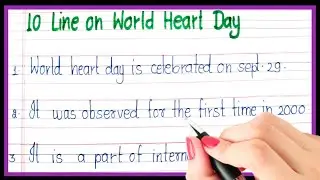 10 Line on World Heart Day
1. World heart day is celebrated on sept. 29.
2. It was observed for the first time in 2000
3. It is a part of intern